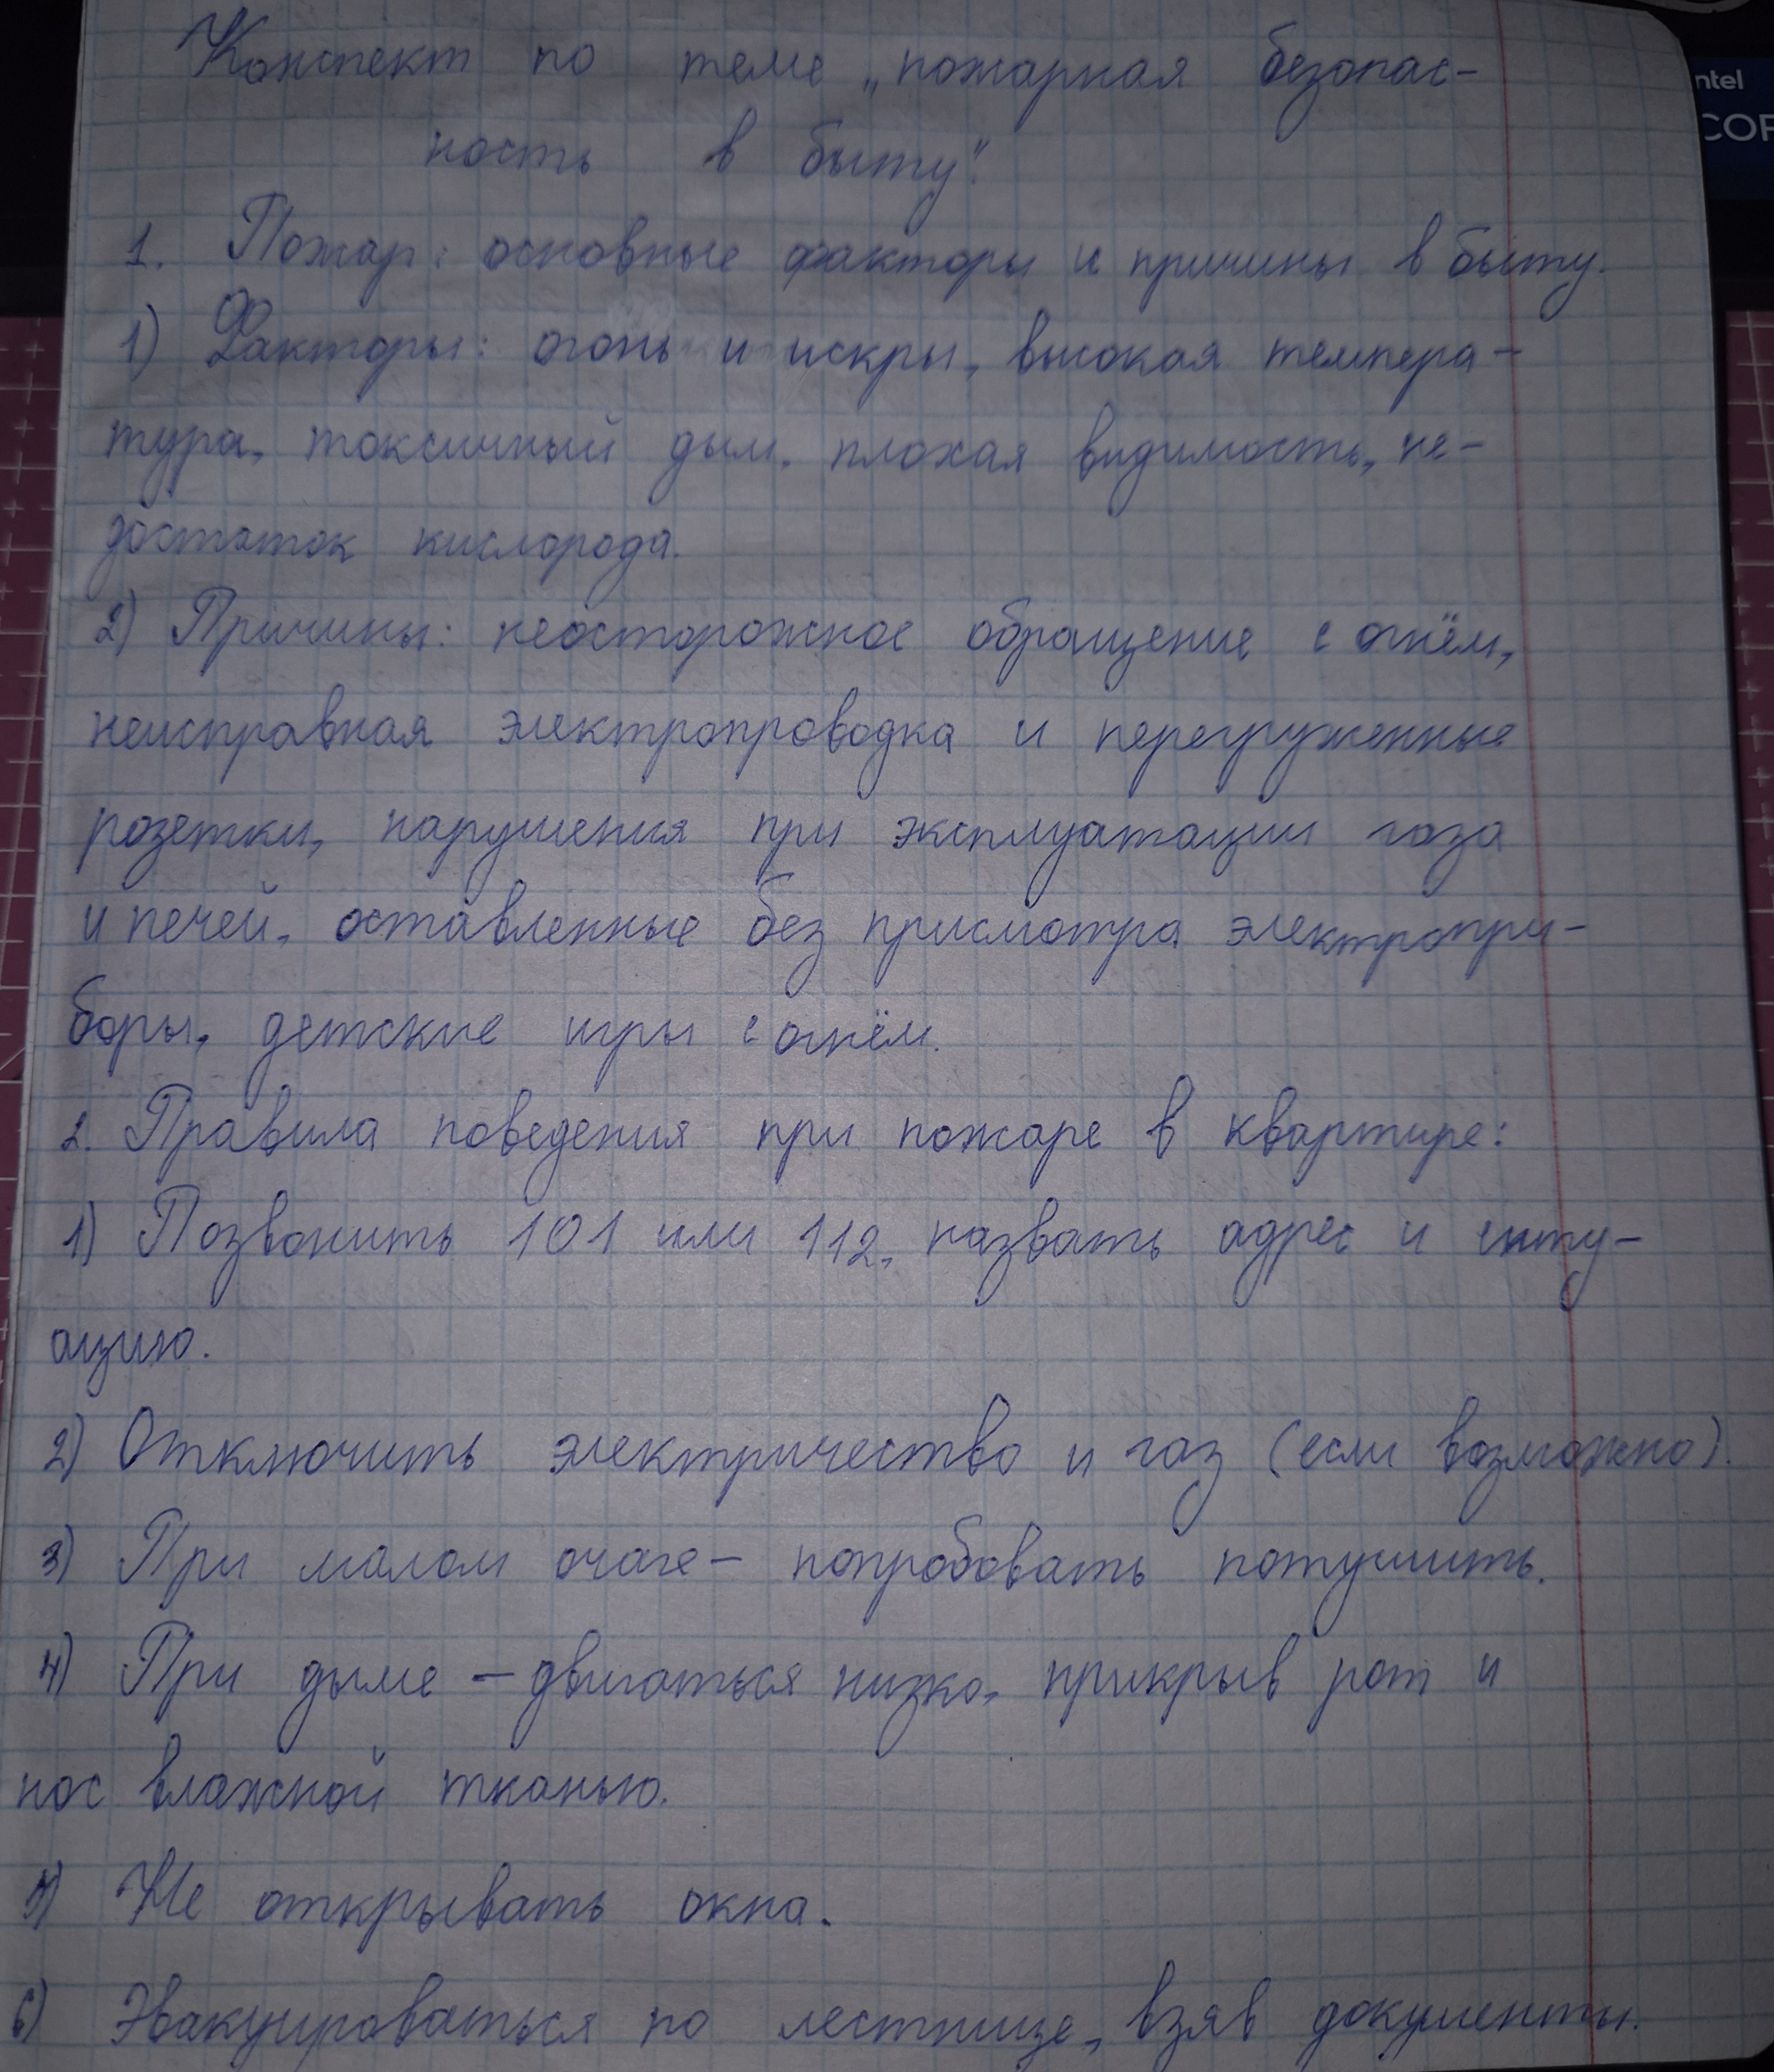 Конспект по теме „пожарная безопас-
ность в быту".
1. Пожар: основные факторы и причины в быту.
1) Факторы: огонь и искры, высокая темпера-
тура, токсичный дым, плохая видимость, не-
достаток кислорода.
2) Причины: неосторожное обращение с огнём,
неисправная электропроводка и перегруженные
розетки, нарушения при эксплуатации газа
и печей, оставленные без присмотра электропри-
боры, детские игры с огнём.
2. Правила поведения при пожаре в квартире:
1) Позвонить 101 или 112, назвать адрес и ситу-
ацию.
2) Отключить электричество и газ (если возможно).
3) При малом очаге - попробовать потушить.
4) При дыме - двигаться низко, прикрыв рот и
нос влажной тканью.
5) Не открывать окна.
6) Эвакуироваться по лестнице, взяв документы.
ntel
COR